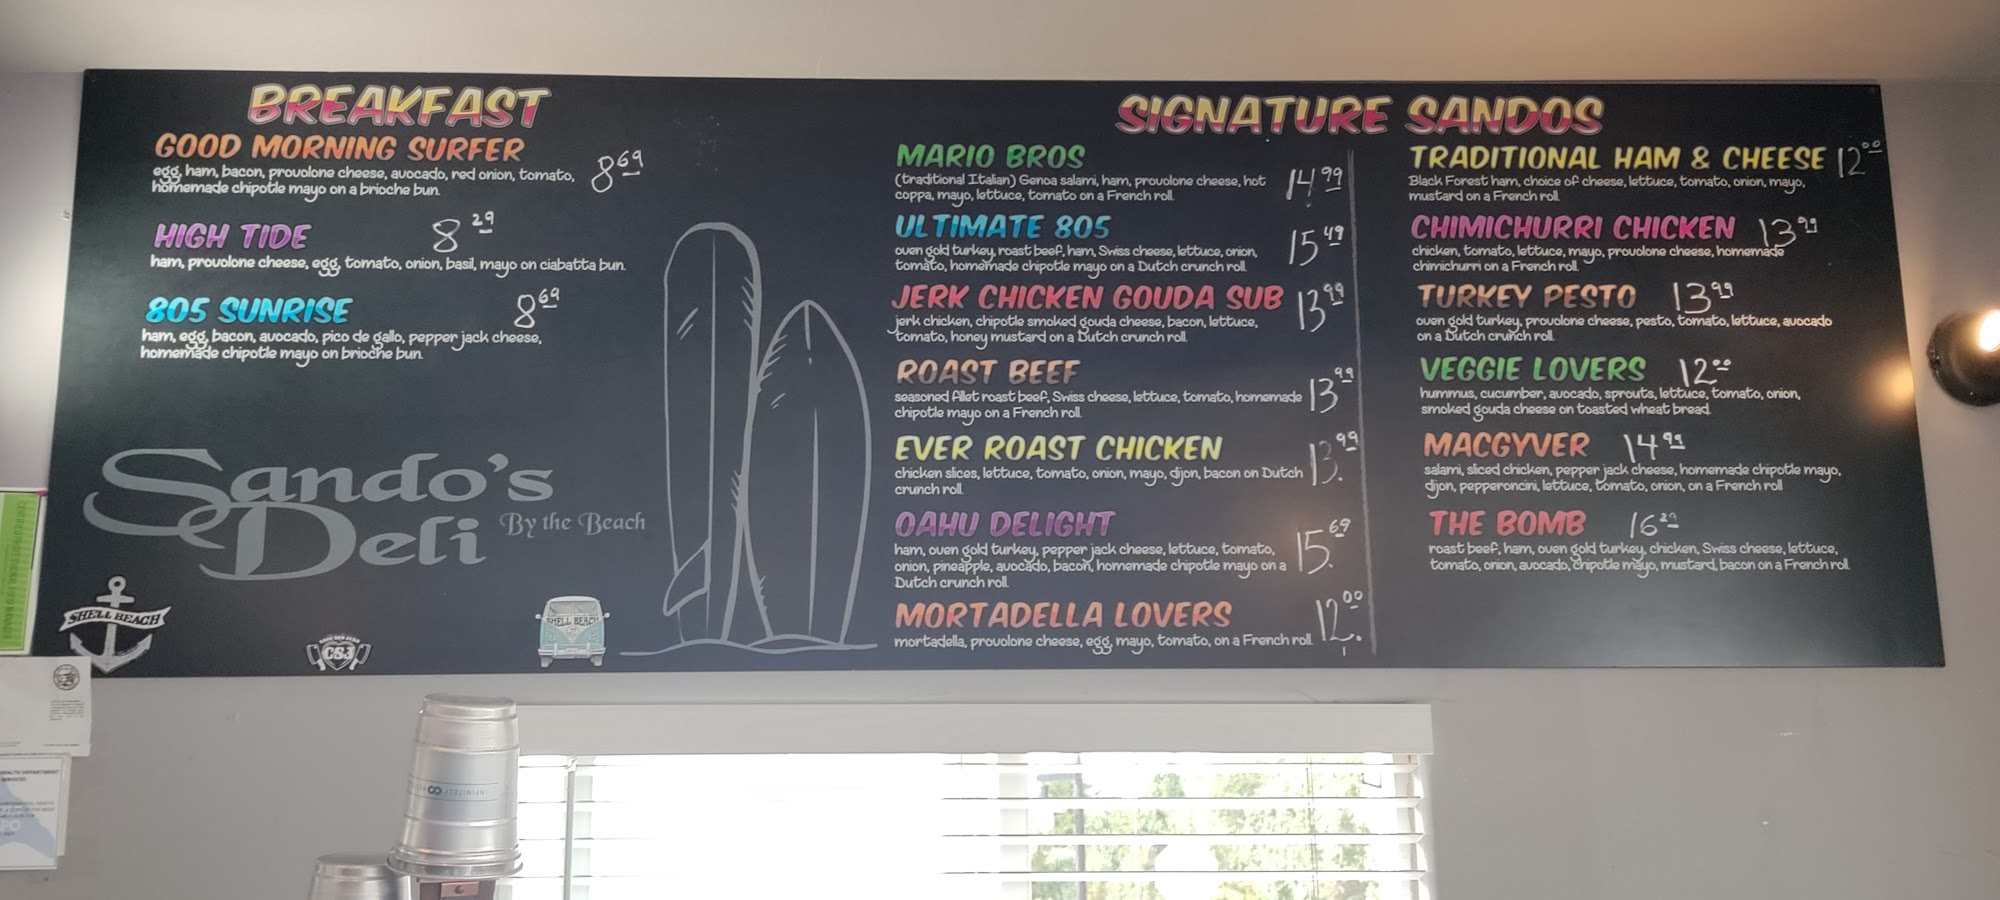 BREAKFAST
GOOD MORNING SURFER 8.69
egg, ham, bacon, provolone cheese, avocado, red onion, tomato,
homemade chipotle mayo on a brioche bun.
HIGH TIDE 8 29
ham, provolone cheese, egg, tomato, onion, basil, mayo on ciabatta bun.
805 SUNRISE 8 69
ham, egg, bacon, avocado, pico de gallo, pepper jack cheese,
homemade chipotle mayo on brioche bun.
Sando's
Deli By the Beach
SHELL BEACH
CSJ
SHELL BEACH
SIGNATURE SANDOS
MARIO BROS 14.99
(traditional Italian) Genoa salami, ham, provolone cheese, hot
coppa, mayo, lettuce, tomato on a French roll.
ULTIMATE 805 15 49
oven gold turkey, roast beef, ham, Swiss cheese, lettuce, onion,
tomato, homemade chipotle mayo on a Dutch crunch roll.
JERK CHICKEN GOUDA SUB 13 99
jerk chicken, chipotle smoked gouda cheese, bacon, lettuce,
tomato, honey mustard on a Dutch crunch roll.
ROAST BEEF 13 99
seasoned fillet roast beef, Swiss cheese, lettuce, tomato, homemade
chipotle mayo on a French roll.
EVER ROAST CHICKEN 13.99
chicken slices, lettuce, tomato, onion, mayo, dijon, bacon on Dutch
crunch roll.
OAHU DELIGHT 15.69
ham, oven gold turkey, pepper jack cheese, lettuce, tomato,
onion, pineapple, avocado, bacon, homemade chipotle mayo on a
Dutch crunch roll.
MORTADELLA LOVERS 12.00
mortadella, provolone cheese, egg, mayo, tomato, on a French roll.
TRADITIONAL HAM & CHEESE 12 00
Black Forest ham, choice of cheese, lettuce, tomato, onion, mayo,
mustard on a French roll.
CHIMICHURRI CHICKEN 13 99
chicken, tomato, lettuce, mayo, provolone cheese, homemade
chimichurri on a French roll.
TURKEY PESTO 13 99
oven gold turkey, provolone cheese, pesto, tomato, lettuce, avocado
on a Dutch crunch roll.
VEGGIE LOVERS 12 00
hummus, cucumber, avocado, sprouts, lettuce, tomato, onion,
smoked gouda cheese on toasted wheat bread.
MACGYVER 14 99
salami, sliced chicken, pepper jack cheese, homemade chipotle mayo,
dijon, pepperoncini, lettuce, tomato, onion, on a French roll
THE BOMB 16 29
roast beef, ham, oven gold turkey, chicken, Swiss cheese, lettuce,
tomato, onion, avocado, chipotle mayo, mustard, bacon on a French roll.
HEALTH DEPARTMENT
SERVICES
INFINITELY